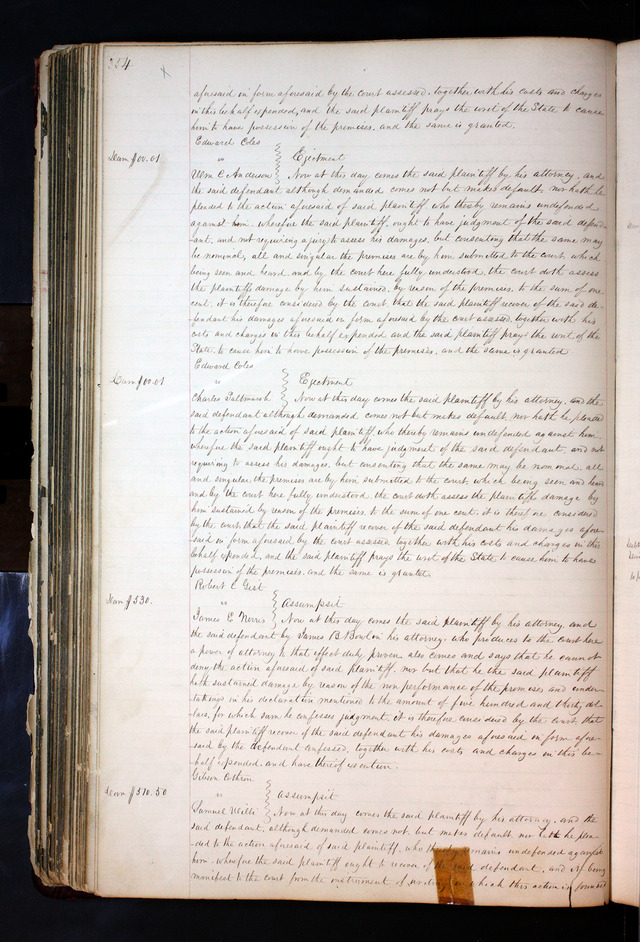 334.
aforesaid in form aforesaid by the court assessed, together with his costs and charges
in this behalf expended, and the said plaintiff prays the writ of the State to cause
him to have possession of the premises, and the same is granted.
Edward Coles
"
Ejectment
Dam $00.01
Wm C Anderson Now at this day comes the said plaintiff by his attorney, and
the said defendant although demanded comes not but makes default, nor hath he
pleaded to the action aforesaid of said plaintiff, who thereby remains undefended
against him, wherefore the said plaintiff, ought to have judgment of the said defend-
ant, and not requiring a jury to assess his damages, but consenting that the same may
be nominal, all and singular the premises are by him submitted to the court, which
being seen and heard and by the court here fully understood, the court doth assess
the plaintiffs damage by him sustained, by reason of the premises, to the sum of one
cent, it is therefore considered by the court, that the said plaintiff recover of the said de-
fendant his damages aforesaid in form aforesaid by the court assessed, together with his
costs and charges in this behalf expended and the said plaintiff prays the writ of the
State, to cause him to have possession of the premises, and the same is granted
Edward Coles
"
Ejectment
Dam $00.01
Charles Saltmarsh Now at this day comes the said plaintiff by his attorney, and the
said defendant although demanded comes not but makes default, nor hath he pleaded
to the action aforesaid of said plaintiff, who thereby remains undefended against him
wherefore the said plaintiff ought to have judgment of the said defendant, and not
requiring to assess his damages, but consenting that the same may be nominal, all
and singular the premises are by him submitted to the court, which being seen and heard
and by the court here fully understood, the court doth assess the plaintiffs damage by
him sustained by reason of the premises, to the sum of one cent, it is therefore considered
by the court that the said plaintiff recover of the said defendant his damages afore-
said in form aforesaid by the court assessed, together with his costs and charges in this
behalf expended, and the said plaintiff prays the writ of the State, to cause him to have
possession of the premises, and the same is granted.
Robert C Gest
"
Assumpsit
Dam $530.
James E Norris Now at this day comes the said plaintiff by his attorney, and
the said defendant by James B. his attorney, who produces to the court here
a power of attorney to that effect duly proven also comes and says that he cannot
deny the action aforesaid of said plaintiff, nor but that he the said plaintiff
hath sustained damage by reason of the non performance of the promises and under-
takings in his declaration mentioned to the amount of five hundred and thirty dol-
lars, for which sum he confesses judgment, it is therefore considered by the court, that
the said plaintiff recover of the said defendant his damages aforesaid in form afore-
said by the defendant confessed, together with his costs and charges in this be-
half expended, and have thereof execution.
Gibson
"
Assumpsit
Dam $510.50
Samuel Now at this day comes the said plaintiff by his attorney, and the
said defendant, although demanded comes not, but makes default nor hath he plea-
ded to the action aforesaid of said plaintiff, who thereby remains undefended against
him, wherefore the said plaintiff ought to recover of the said defendant, and it being
manifest to the court from the instrument of writing on which this action is founded